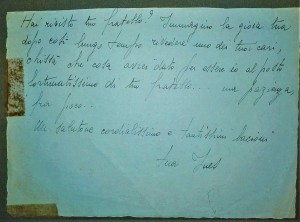 Hai rivisto tuo fratello? Immagino la gioia tua
dopo così lungo tempo rivedere uno dei tuoi cari,
chissà che cosa avrei dato per essere io al posto
fortunatissimo di tuo fratello... ma pazienza
fra poco...
Un salutone cordialissimo e tantissimi bacioni
tua